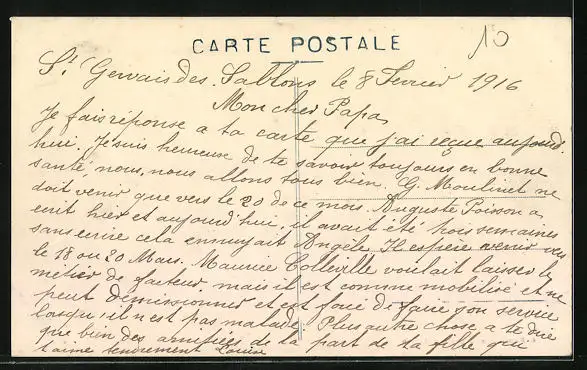 10
CARTE POSTALE
St Gervais des Sablons le 8 Fevrier 1916
Mon cher Papa,
Je fais réponse a ta carte que j'ai reçue aujourd'
hui. Je suis heureuse de te savoir toujours en bonne
santé, nous, nous allons tous bien. G. Moulinet ne
doit venir que vers le 20 de ce mois. Auguste Poisson a
ecrit hier et aujourd'hui, il avait été trois semaines
sans ecrire cela ennuyait Angèle. Il espère venir vers
le 18 ou 20 Mars. Maurice Colleville voulait laisser le
métier de facteur, mais il est comme mobilisé et ne
peut démissionner et est forcé de faire son service
lorsqu'il n'est pas malade. Plus autre chose a te dire
que bien des amitiées de la part de ta fille qui
t'aime tendrement Louise